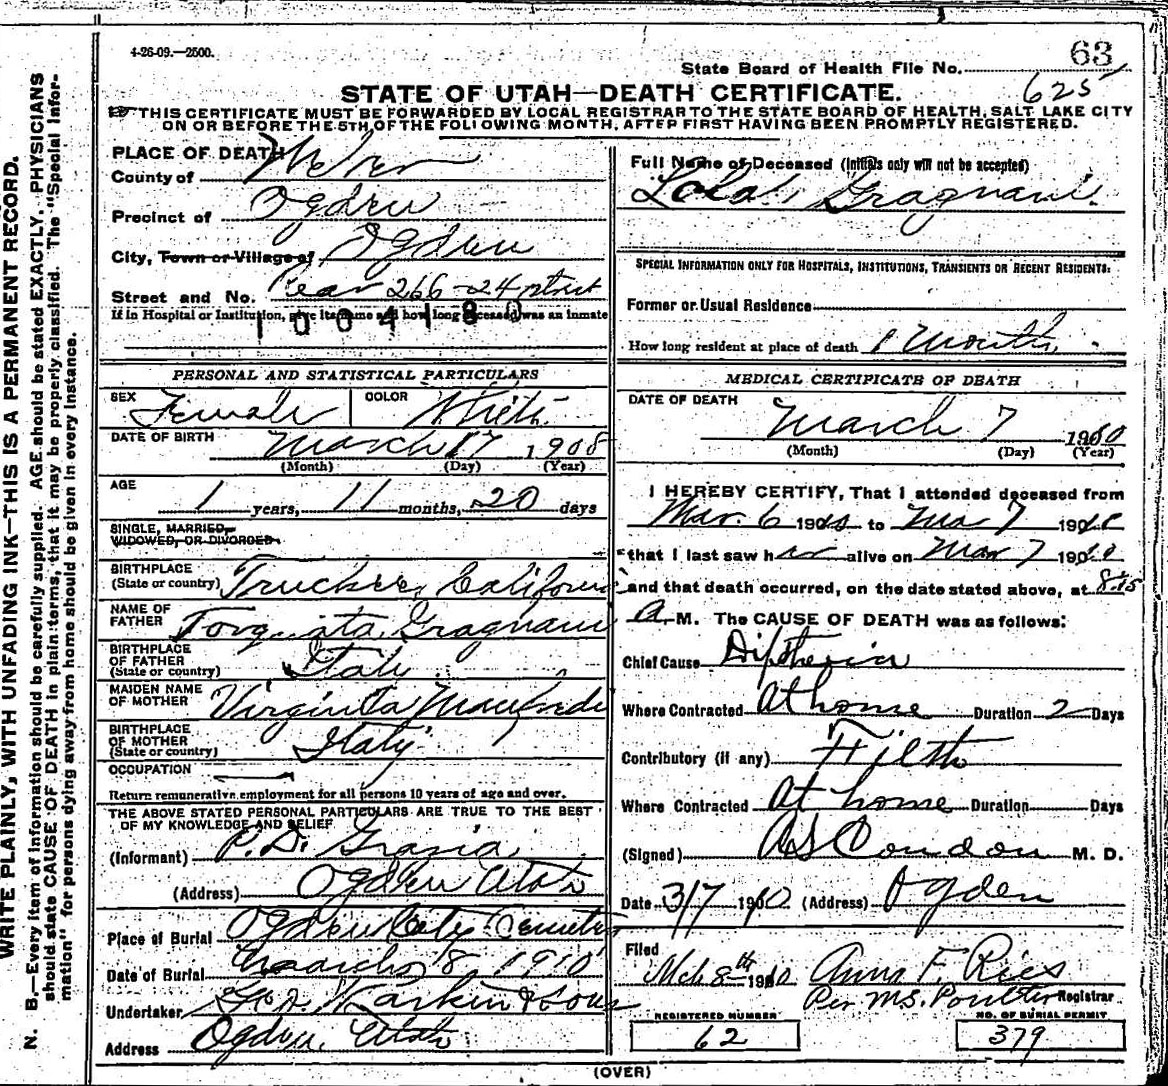 4-26-09.—2500.
63
State Board of Health File No.
625
STATE OF UTAH—DEATH CERTIFICATE.
THIS CERTIFICATE MUST BE FORWARDED BY LOCAL REGISTRAR TO THE STATE BOARD OF HEALTH, SALT LAKE CITY
ON OR BEFORE THE 5TH OF THE FOLLOWING MONTH, AFTER FIRST HAVING BEEN PROMPTLY REGISTERED.
WRITE PLAINLY, WITH UNFADING INK—THIS IS A PERMANENT RECORD.
N. B.—Every item of information should be carefully supplied. AGE should be stated EXACTLY. PHYSICIANS
should state CAUSE OF DEATH in plain terms, that it may be properly classified. The "Special Infor-
mation" for persons dying away from home should be given in every instance.
PLACE OF DEATH
County of Weber
Precinct of Ogden
City, Town or Village of Ogden
Street and No. Rear 266-24 street
If in Hospital or Institution, give its name and how long deceased was an inmate
1004180
PERSONAL AND STATISTICAL PARTICULARS
SEX Female COLOR White
DATE OF BIRTH March 17 1908
(Month) (Day) (Year)
AGE
1 years, 11 months, 20 days
SINGLE, MARRIED,
WIDOWED, OR DIVORCED
BIRTHPLACE
(State or country) Truckee, California
NAME OF
FATHER Torquato Gragnani
BIRTHPLACE
OF FATHER
(State or country) Italy
MAIDEN NAME
OF MOTHER Virginita
BIRTHPLACE
OF MOTHER
(State or country) Italy
OCCUPATION
Return remunerative employment for all persons 10 years of age and over.
THE ABOVE STATED PERSONAL PARTICULARS ARE TRUE TO THE BEST
OF MY KNOWLEDGE AND BELIEF
(Informant) P. D. Grasia
(Address) Ogden Utah
Place of Burial Ogden City Cemetery
Date of Burial March 8, 1910
Undertaker Larkin & Sons
Address Ogden, Utah
Full Name of Deceased (Initials only will not be accepted)
Lola Gragnani.
SPECIAL INFORMATION ONLY FOR HOSPITALS, INSTITUTIONS, TRANSIENTS OR RECENT RESIDENTS:
Former or Usual Residence
How long resident at place of death Months.
MEDICAL CERTIFICATE OF DEATH
DATE OF DEATH
March 7 1910
(Month) (Day) (Year)
I HEREBY CERTIFY, That I attended deceased from
Mar. 6 1910 to Mar 7 1910
that I last saw her alive on Mar 7 1910
and that death occurred, on the date stated above, at 8:15
A. M. The CAUSE OF DEATH was as follows:
Chief Cause Diptheria
Where Contracted At home Duration 2 Days
Contributory (if any) Filth
Where Contracted At home Duration Days
(Signed) AS Condon M. D.
Date 3/7 1910 (Address) Ogden
Filed
Mch 8th 1910 Anna F. Ries
Per M.S. Poulter Registrar
REGISTERED NUMBER
62
NO. OF BURIAL PERMIT
379
(OVER)